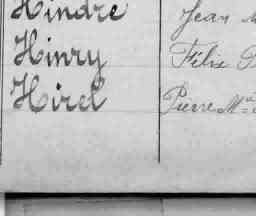 Hindre Jean
Hinry Félix
Hirel Pierre Mie